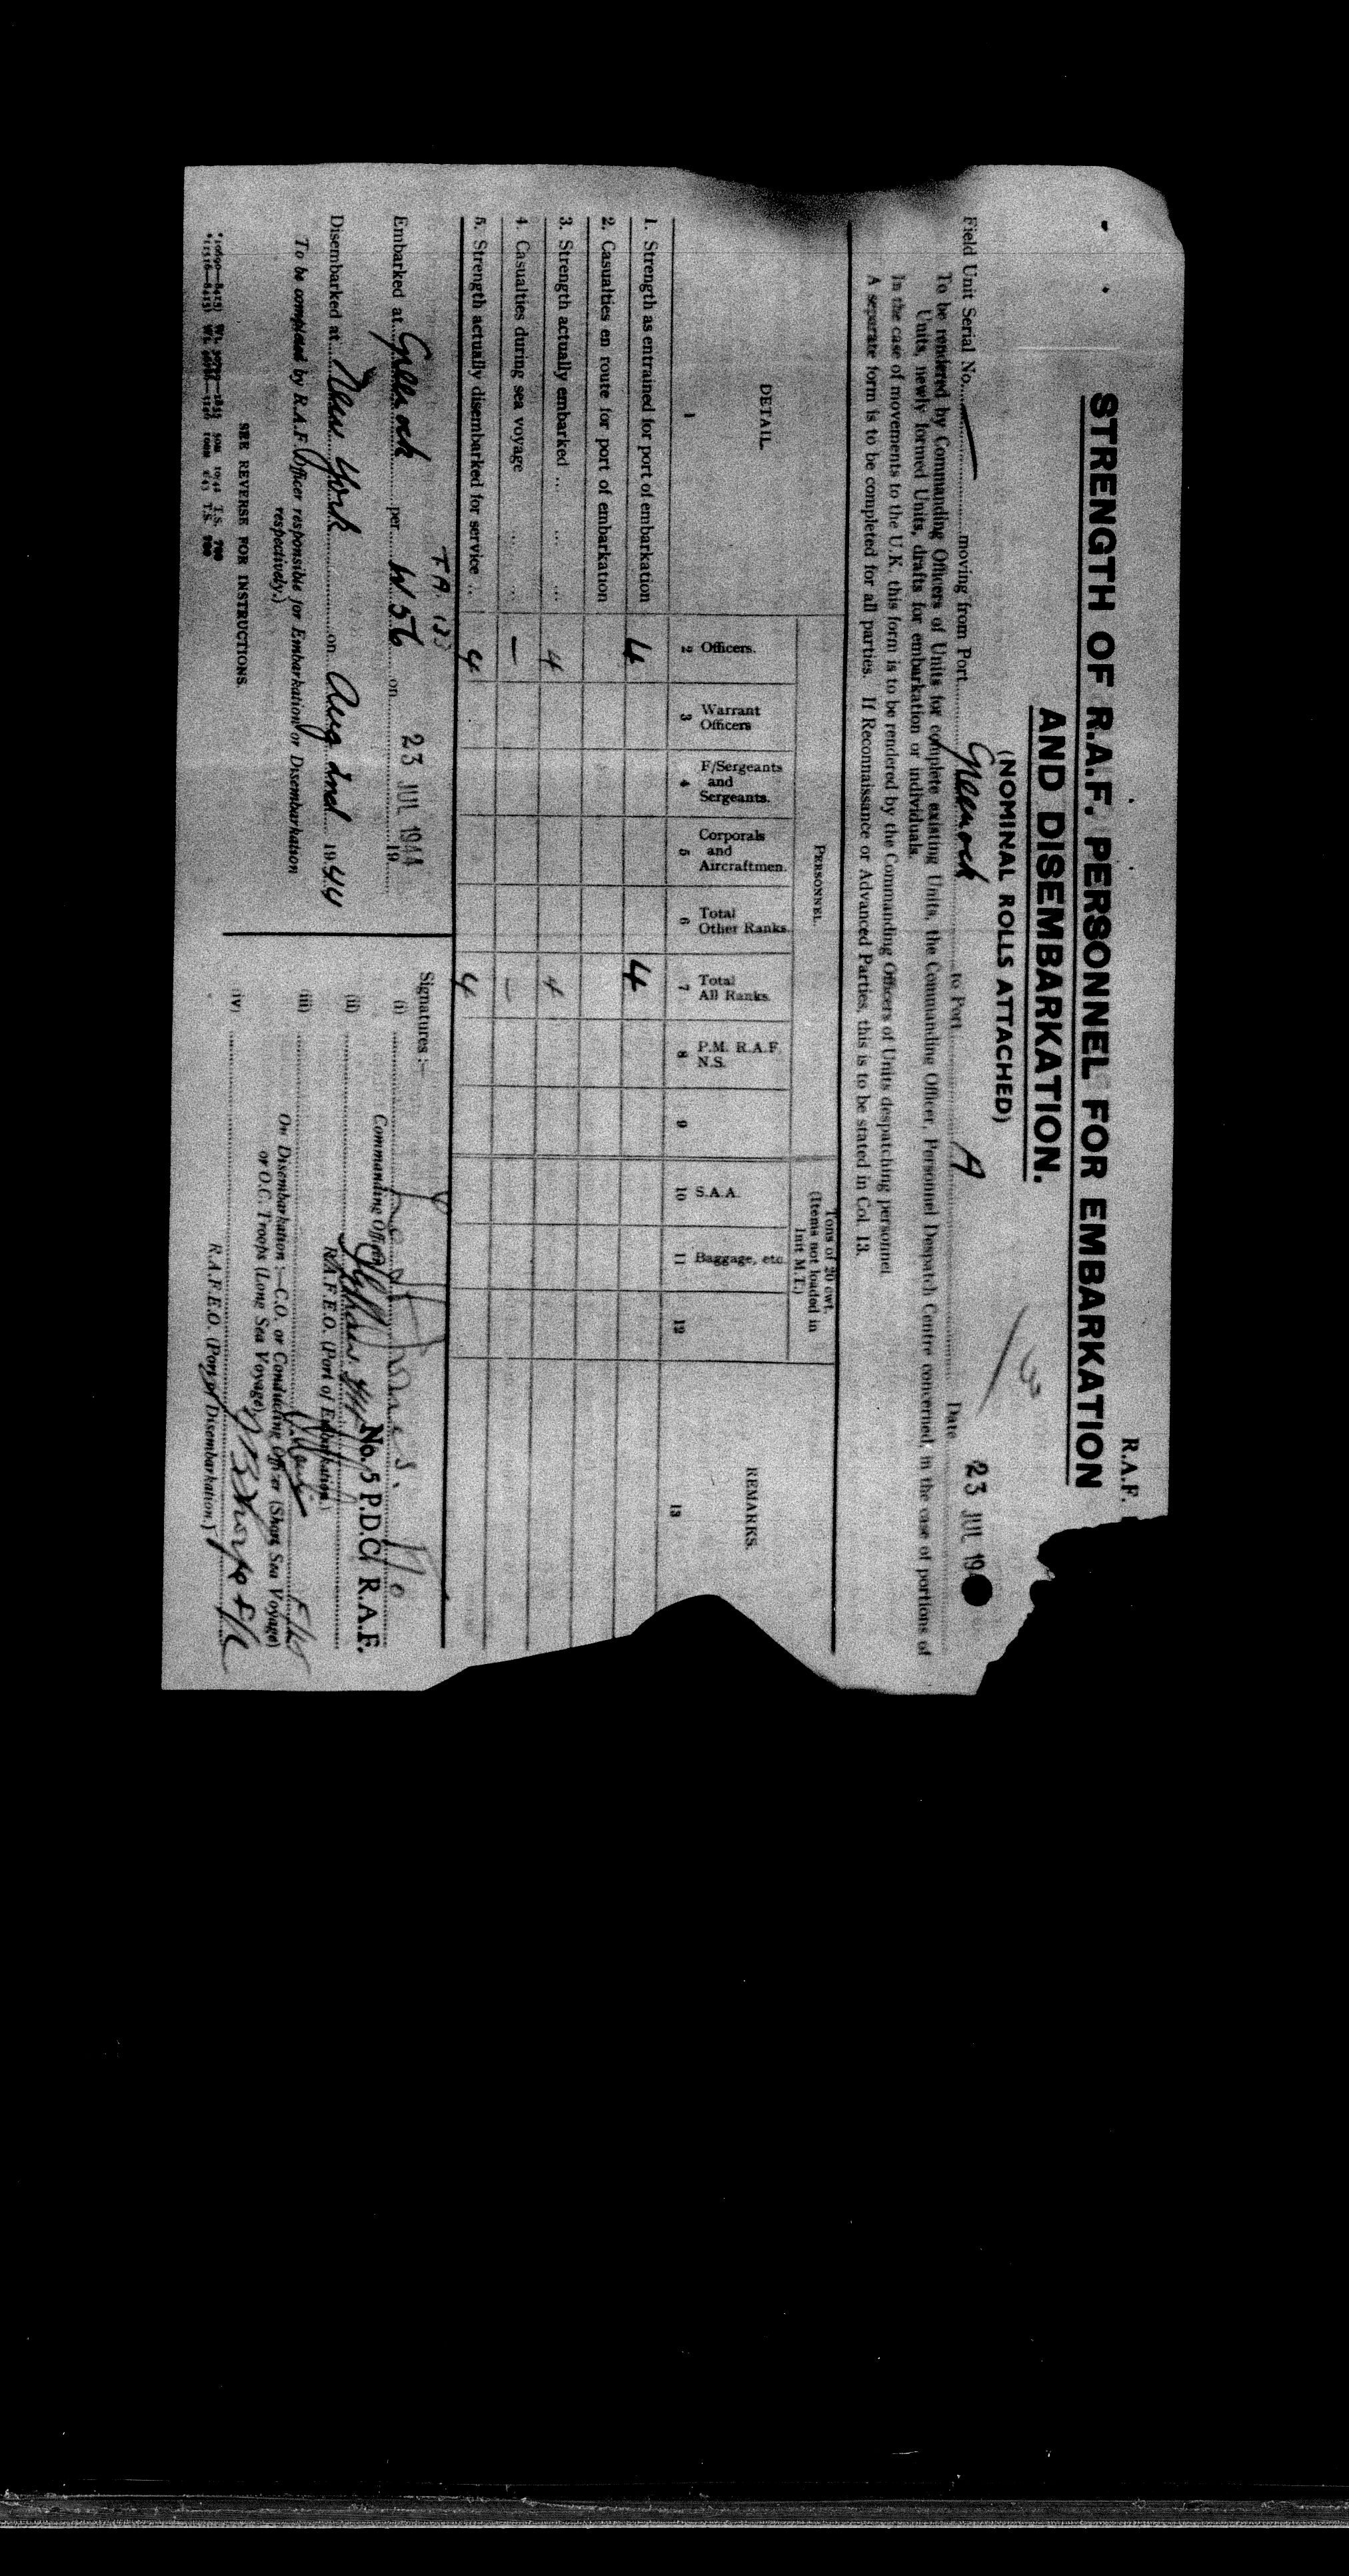 R.A.F.
STRENGTH OF R.A.F. PERSONNEL FOR EMBARKATION
AND DISEMBARKATION.
(NOMINAL ROLLS ATTACHED)
Field Unit Serial No. — moving from Port Greenock to Port A Date 23 JUL 19
To be rendered by Commanding Officers of Units for complete existing Units, the Commanding Officer, Personnel Despatch Centre concerned, in the case of portions of
Units, newly formed Units, drafts for embarkation or individuals.
In the case of movements to the U.K. this form is to be rendered by the Commanding Officers of Units despatching personnel
A separate form is to be completed for all parties. If Reconnaissance or Advanced Parties, this is to be stated in Col. 13.
PERSONNEL.
Tons of 20 cwt.
(Items not loaded in
Init M.T.)
DETAIL.
Officers.
Warrant Officers
F/Sergeants and Sergeants.
Corporals and Aircraftmen.
Total Other Ranks.
Total All Ranks.
P.M. R.A.F. N.S.
S.A.A.
Baggage, etc.
REMARKS.
1 2 3 4 5 6 7 8 9 10 11 12 13
1. Strength as entrained for port of embarkation 4 4
2. Casualties en route for port of embarkation
3. Strength actually embarked ... ... ... 4 4
4. Casualties during sea voyage ... ... — —
5. Strength actually disembarked for service .. 4 4
Embarked at Greenock per W56 on 23 JUL 1944 19
Disembarked at New York on Aug 2nd 1944
To be completed by R.A.F. Officer responsible for Embarkation or Disembarkation
respectively.)
SEE REVERSE FOR INSTRUCTIONS.
Signatures :—
(i)
Commanding Officer
No. 5 P.D.C. R.A.F.
(ii)
R.A.F.E.O. (Port of Embarkation.)
(iii) F/Lt
On Disembarkation :—C.O. or Conducting Officer (Short Sea Voyage)
or O.C. Troops (Long Sea Voyage)
(iv)
R.A.F.E.O. (Port of Disembarkation.)